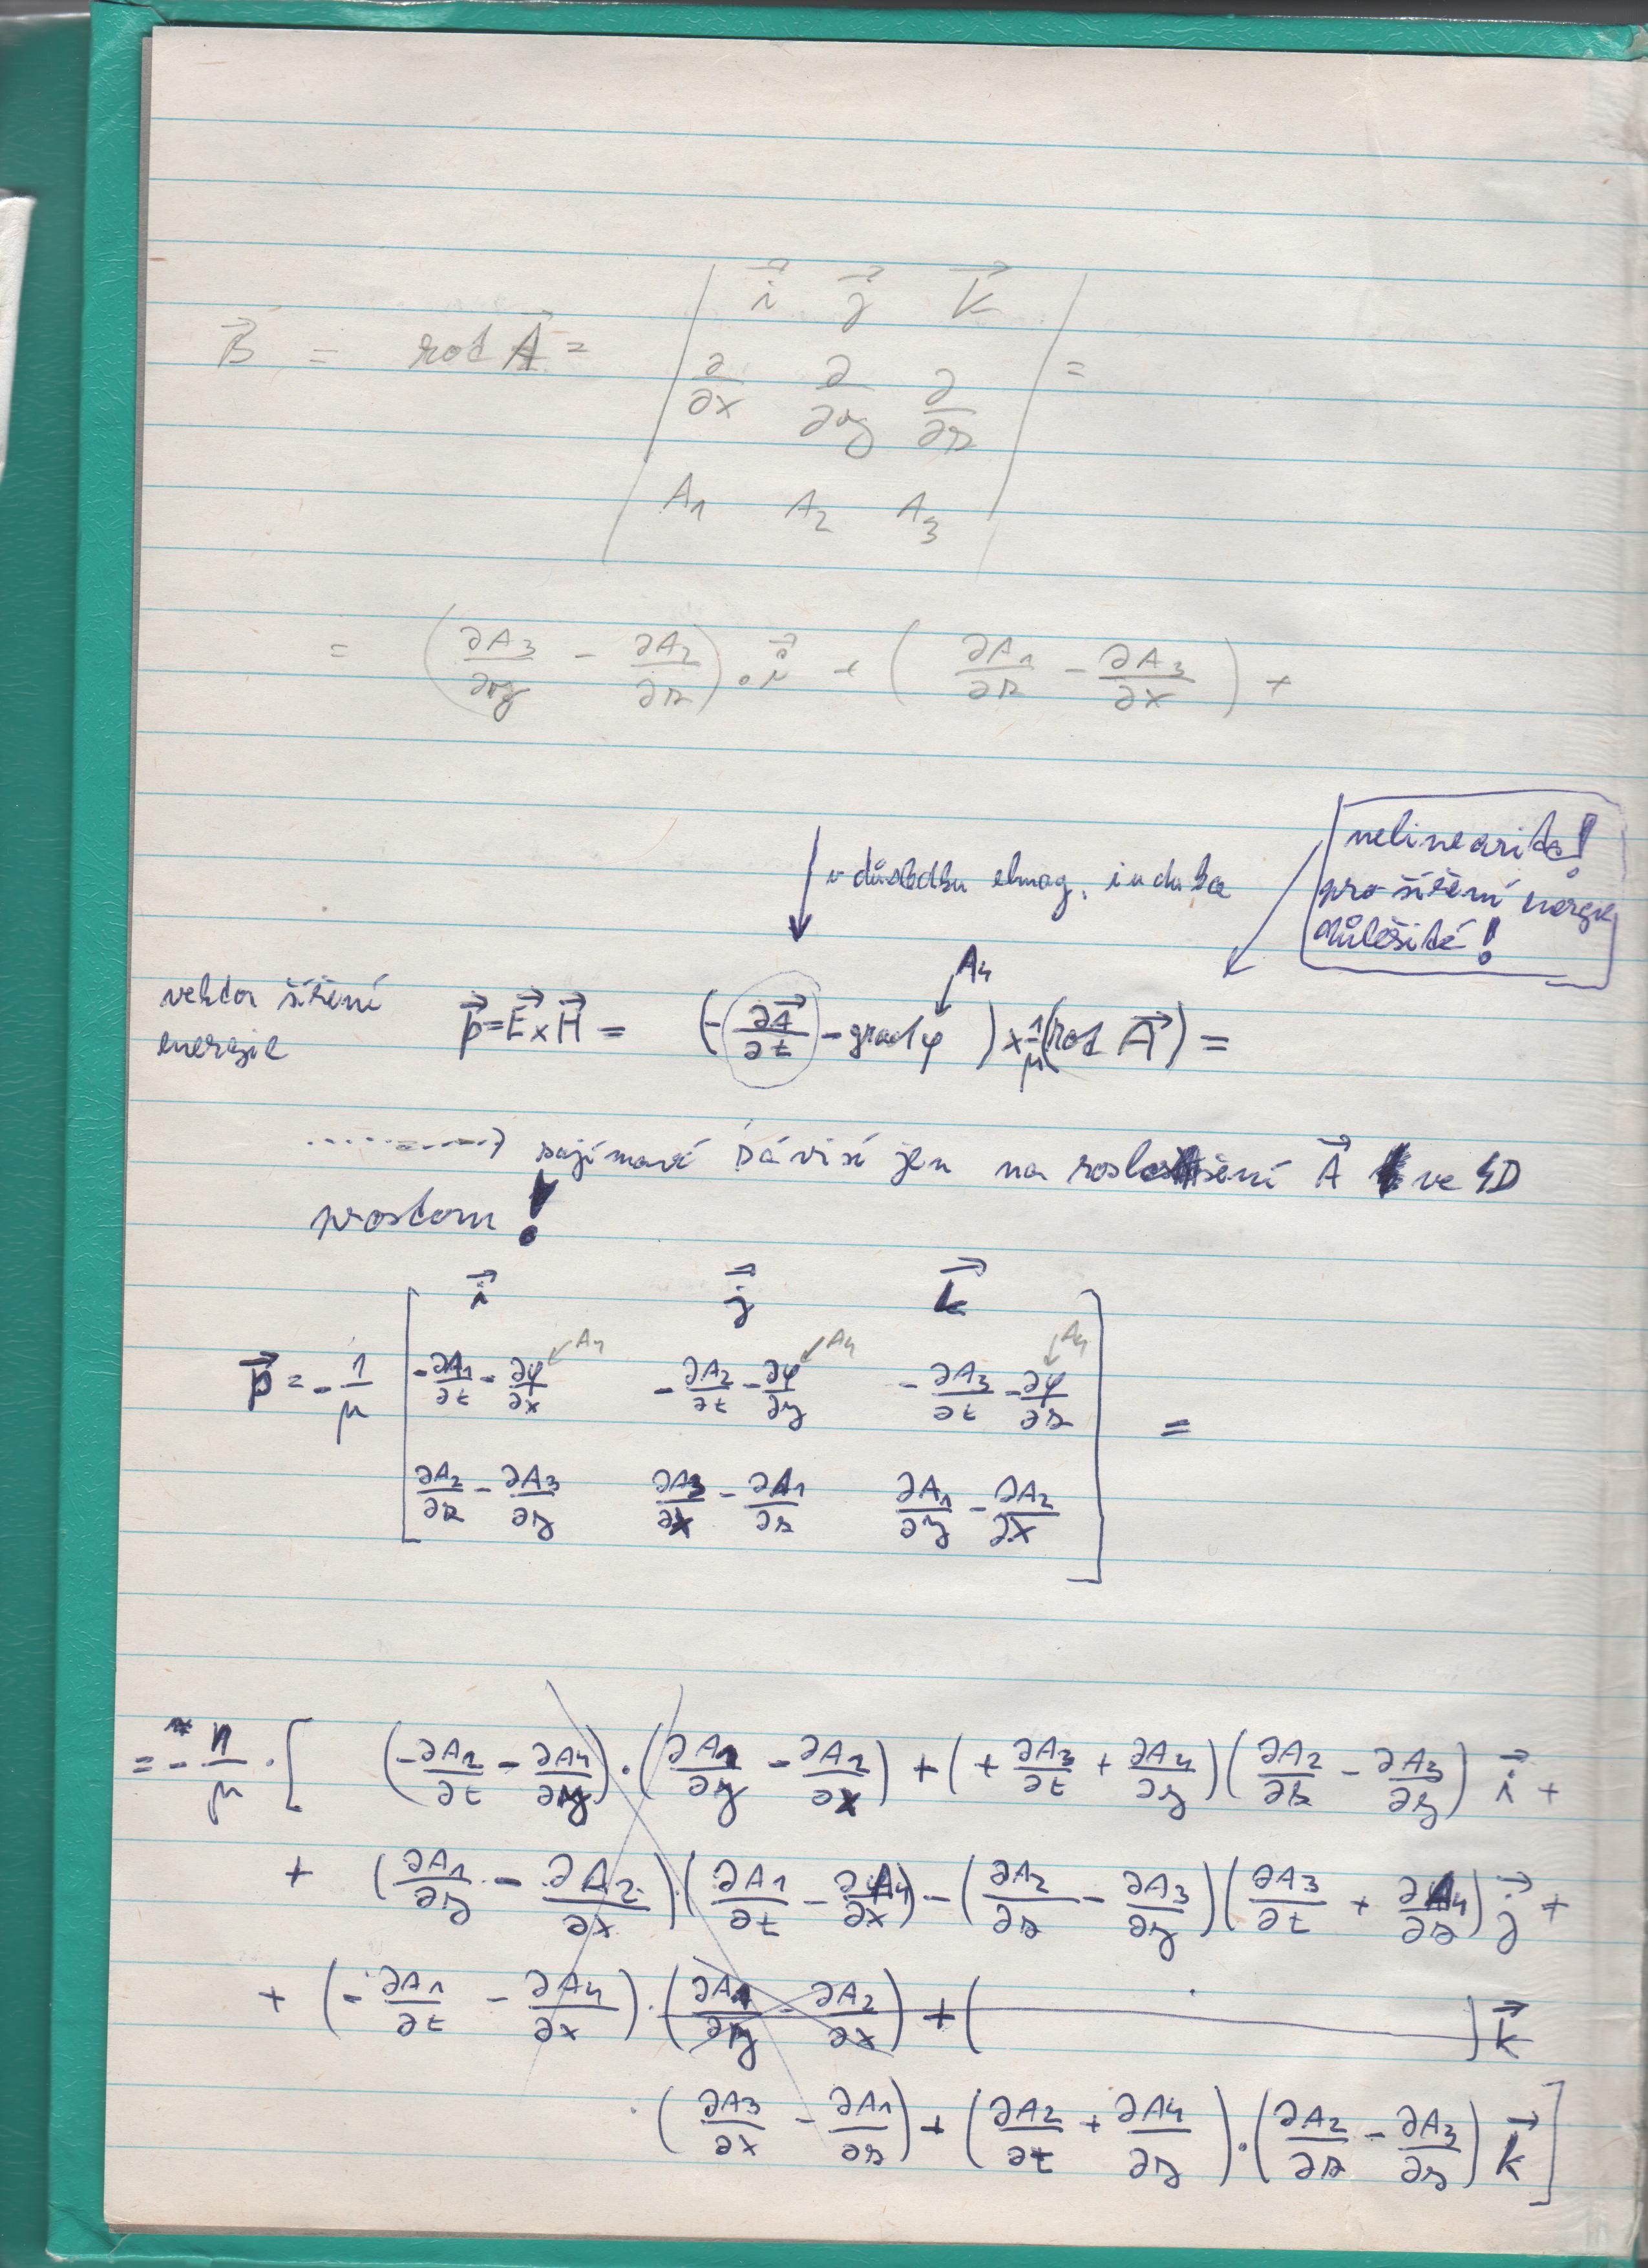 i⃗ j⃗ k⃗
B⃗ = rot A⃗ = | ∂/∂x ∂/∂y ∂/∂z | =
A₁ A₂ A₃
= (∂A₃/∂y - ∂A₂/∂z)·i⃗ + (∂A₁/∂z - ∂A₃/∂x) +
nelinearita!
v důsledku elmag. indukce
pro šíření energie
důležité!
A₄
vektor šíření
energie
p⃗ = E⃗ × H⃗ = (- ∂A⃗/∂t - grad φ) × 1/μ (rot A⃗) =
.........→ zajímavé závisí jen na rozložení A⃗ ve 4D
prostoru!
i⃗ j⃗ k⃗
A₄ A₄ A₄
p⃗ = - 1/μ [ -∂A₁/∂t - ∂φ/∂x -∂A₂/∂t - ∂φ/∂y -∂A₃/∂t - ∂φ/∂z ] =
∂A₂/∂z - ∂A₃/∂y ∂A₃/∂x - ∂A₁/∂z ∂A₁/∂y - ∂A₂/∂x
= - 1/μ · [ (-∂A₂/∂t - ∂A₄/∂y)·(∂A₁/∂y - ∂A₂/∂x) + (+ ∂A₃/∂t + ∂A₄/∂z)(∂A₂/∂z - ∂A₃/∂y) i⃗ +
+ (∂A₁/∂y - ∂A₂/∂x)(∂A₁/∂t - ∂A₄/∂x) - (∂A₂/∂z - ∂A₃/∂y)(∂A₃/∂t + ∂A₄/∂z) j⃗ +
+ (- ∂A₁/∂t - ∂A₄/∂x)·(∂A₁/∂y - ∂A₂/∂x) + ( ) k⃗
·(∂A₃/∂x - ∂A₁/∂z) + (∂A₂/∂t + ∂A₄/∂y)·(∂A₂/∂z - ∂A₃/∂y) k⃗ ]